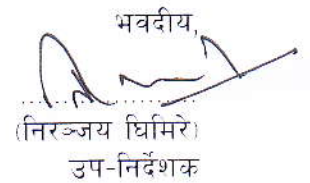 भवदीय,
(निरञ्जय घिमिरे)
उप-निर्देशक